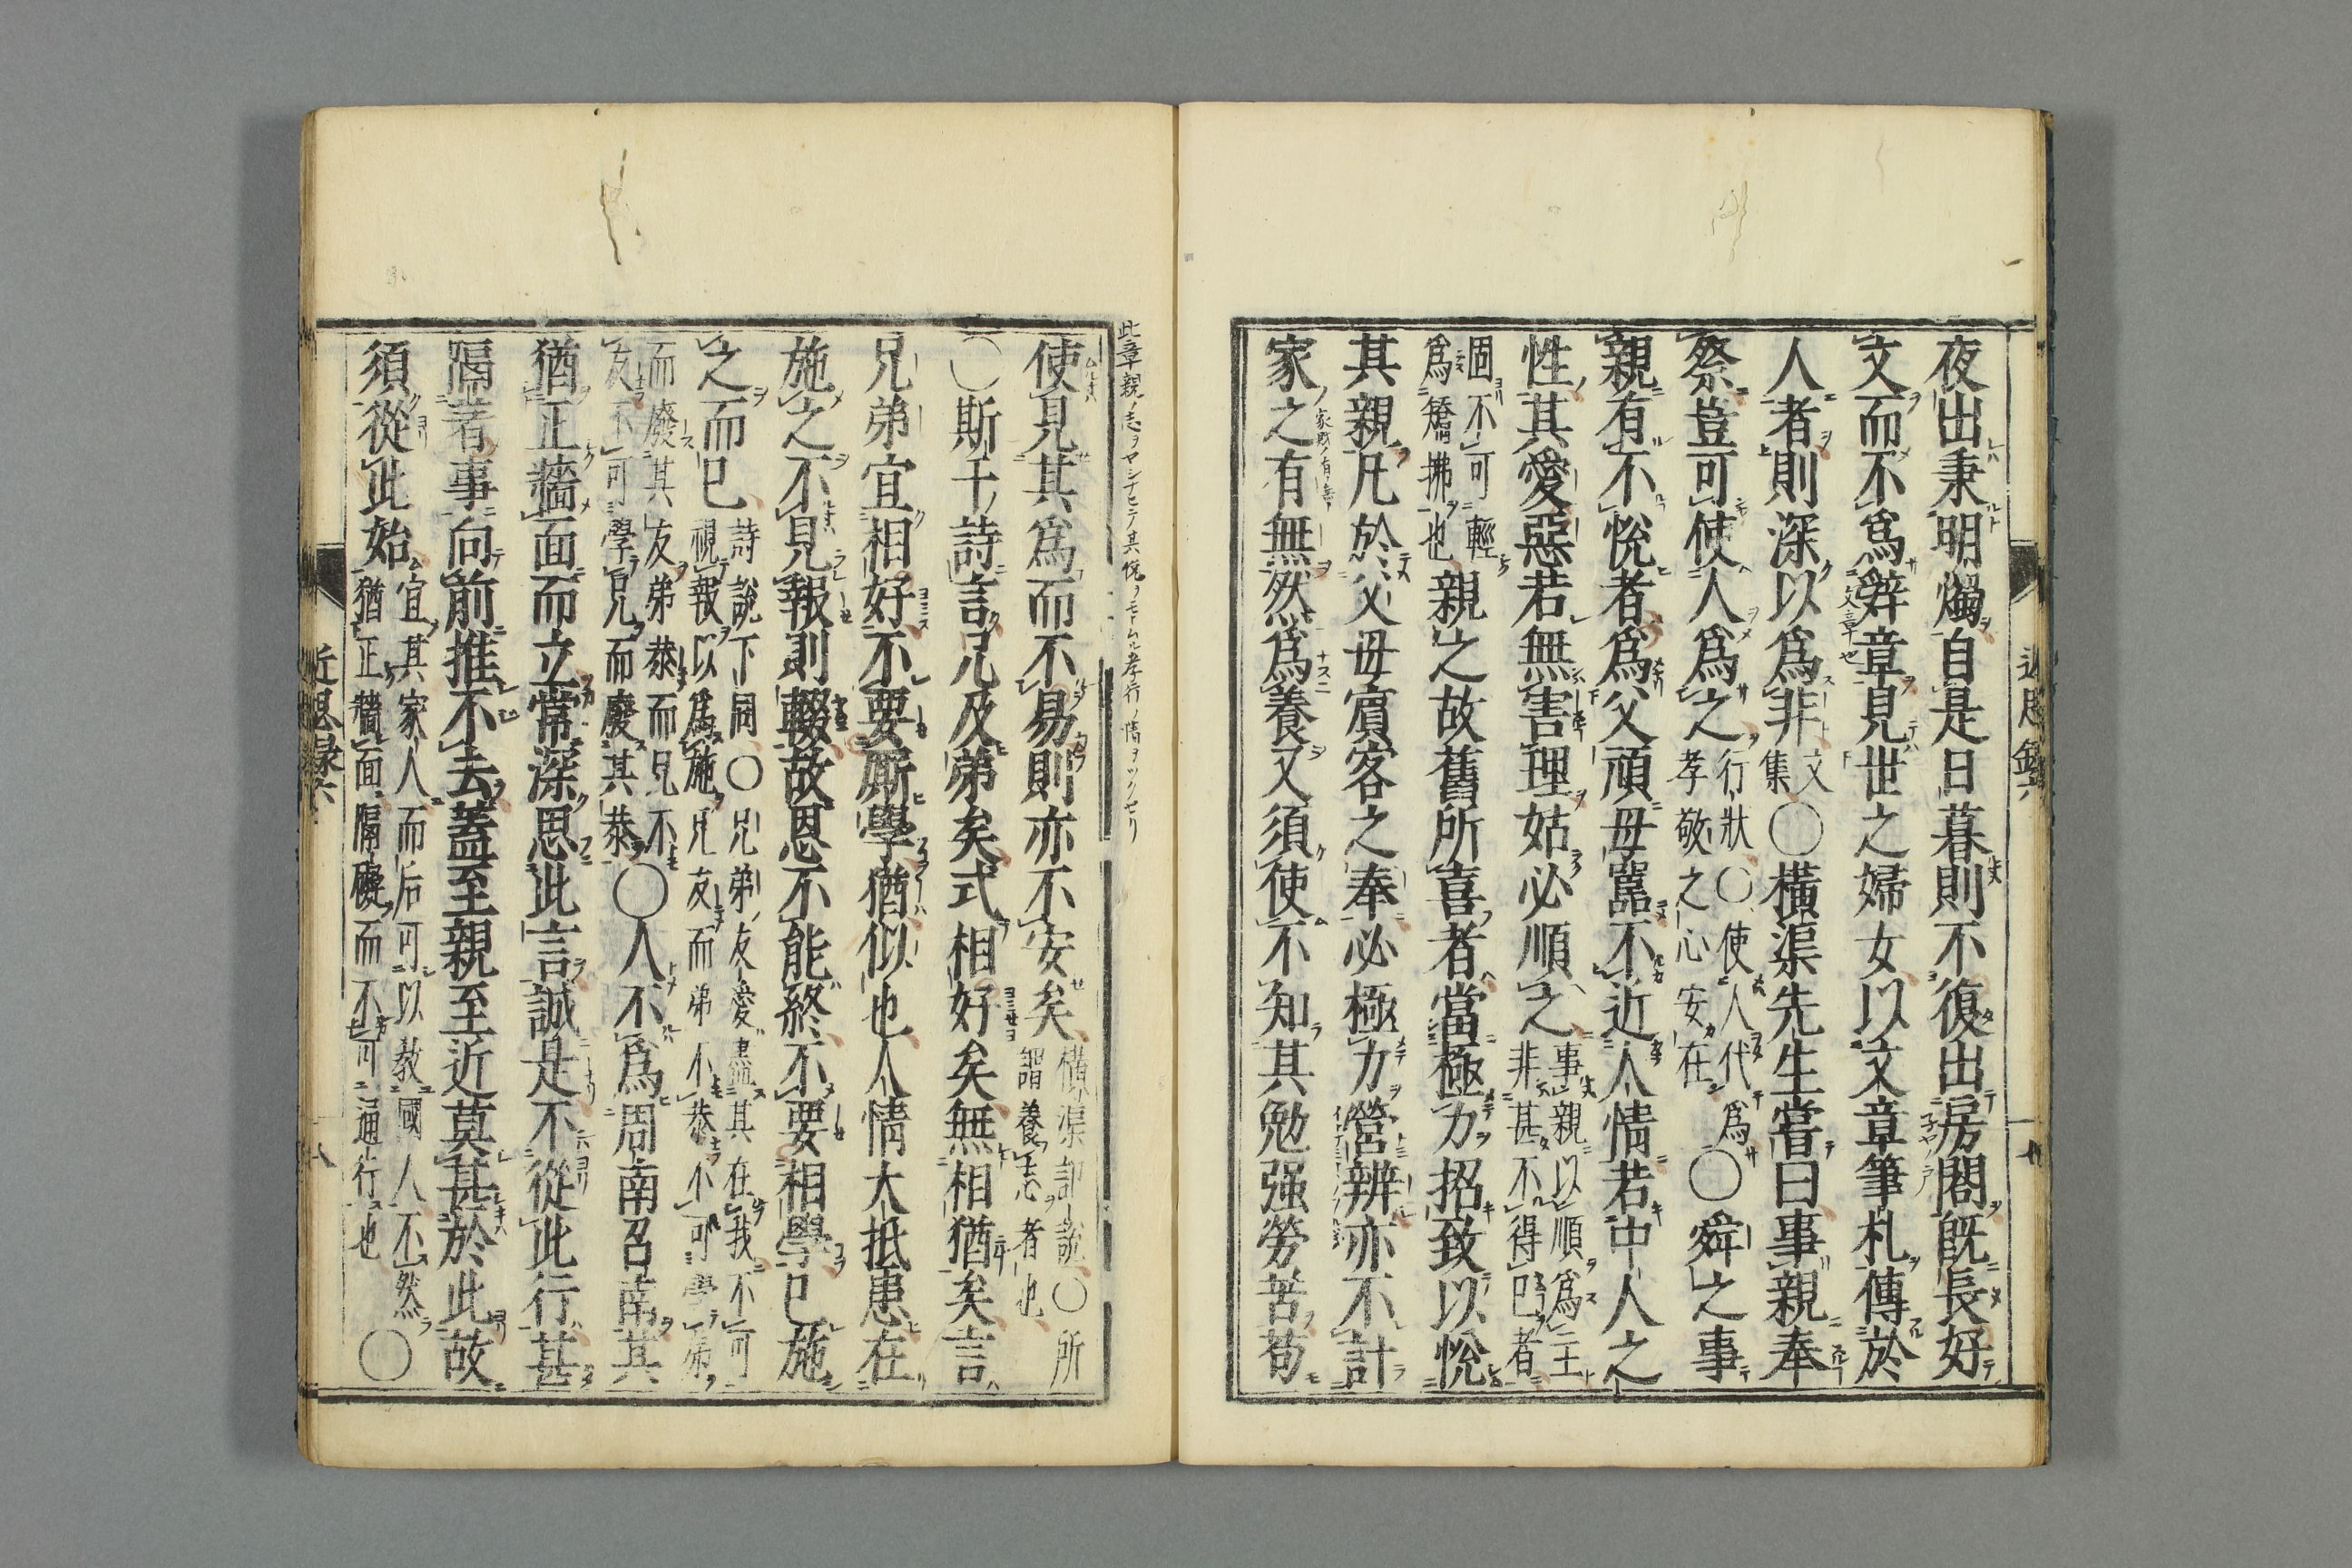 夜出秉明燭自是日暮則不復出房閤既長好
文而不爲辭章見世之婦女以文章筆札傳於
人者則深以爲非文集〇橫渠先生嘗曰事親奉
祭豈可使人爲之行狀〇使人代爲孝敬之心安在〇舜之事
親有不悅者爲父頑母嚚不近人情若中人之
性其愛惡若無害理姑必順之事親以順爲主非甚不得已者
固不可輕爲矯拂也親之故舊所喜者當極力招致以悅
其親凡於父母賓客之奉必極力營辨亦不計
家之有無然爲養又須使不知其勉强勞苦苟
使見其爲而不易則亦不安矣橫渠記說〇所謂養志者也
〇斯干詩言兄及弟矣式相好矣無相猶矣言
兄弟宜相好不要厮學猶似也人情大抵患在
施之不見報則輟故恩不能終不要相學已施
之而已詩說下同〇兄弟友愛盡其在我不可視報以爲施兄友而弟不恭不可學弟
而廢其友弟恭而兄不友不可學兄而廢其恭〇人不爲周南召南其
猶正牆面而立常深思此言誠是不從此行甚
隔著事向前推不去蓋至親至近莫甚於此故
須從此始宜其家人而后可以教國人不然猶正牆面隔礙而不可通行也〇
近思錄六